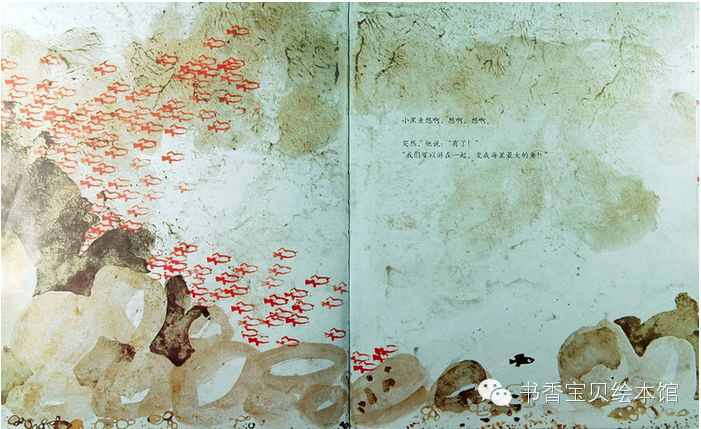 小黑鱼想啊，想啊，想啊。
突然，他说：“有了！”
“我们可以游在一起，变成海里最大的鱼！”
书香宝贝绘本馆